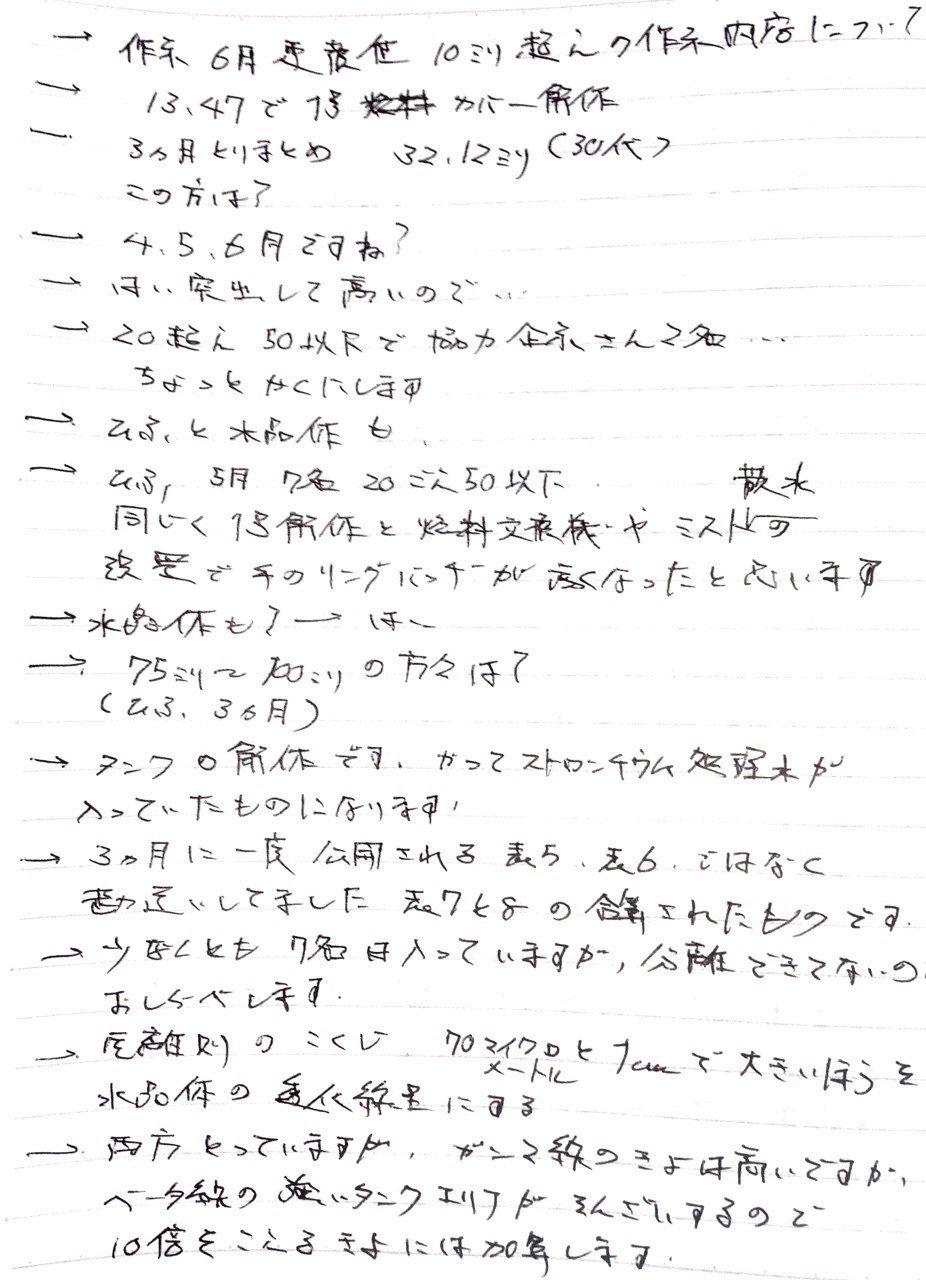 → 作系 6月 10ミリ超えの作系内容について
→ 13.47で1号 カバー解作
→ 3ヵ月とりまとめ 32.12ミリ(30代)
この方は?
→ 4.5.6月ですね?
→ はい突出して高いので…
→ 20超え 50以下で協力企業さん2名…
ちょっとかくにします
→ ひふ、と水晶体も、
→ ひふ, 5月 7名 20ごえ50以下 散水
同じく1号解体と燃料交換機やミストの
設置で手のリングバッチーが高くなったと思います
→ 水晶体も? → はい
→ 75ミリ〜100ミリの方々は?
(ひふ、3ヵ月)
→ タンクの解体です、かつてストロンチウム処理水が
入っていたものになります、
→ 3ヵ月に一度公開される 表5、表6、ではなく
勘違いしてました 表7と8の合算されたものです.
→ 少なくとも7名は入っていますが,分離できてないの
おしらべします.
→ のこくじ 70マイクロメートルと1cmで大きいほうを
水晶体の 線量にする
→ 両方とっていますが、ガンマ線のきよは高いですが,
ベータ線の強いタンクエリアがそんざいするので
10倍をこえるきよには加算します.